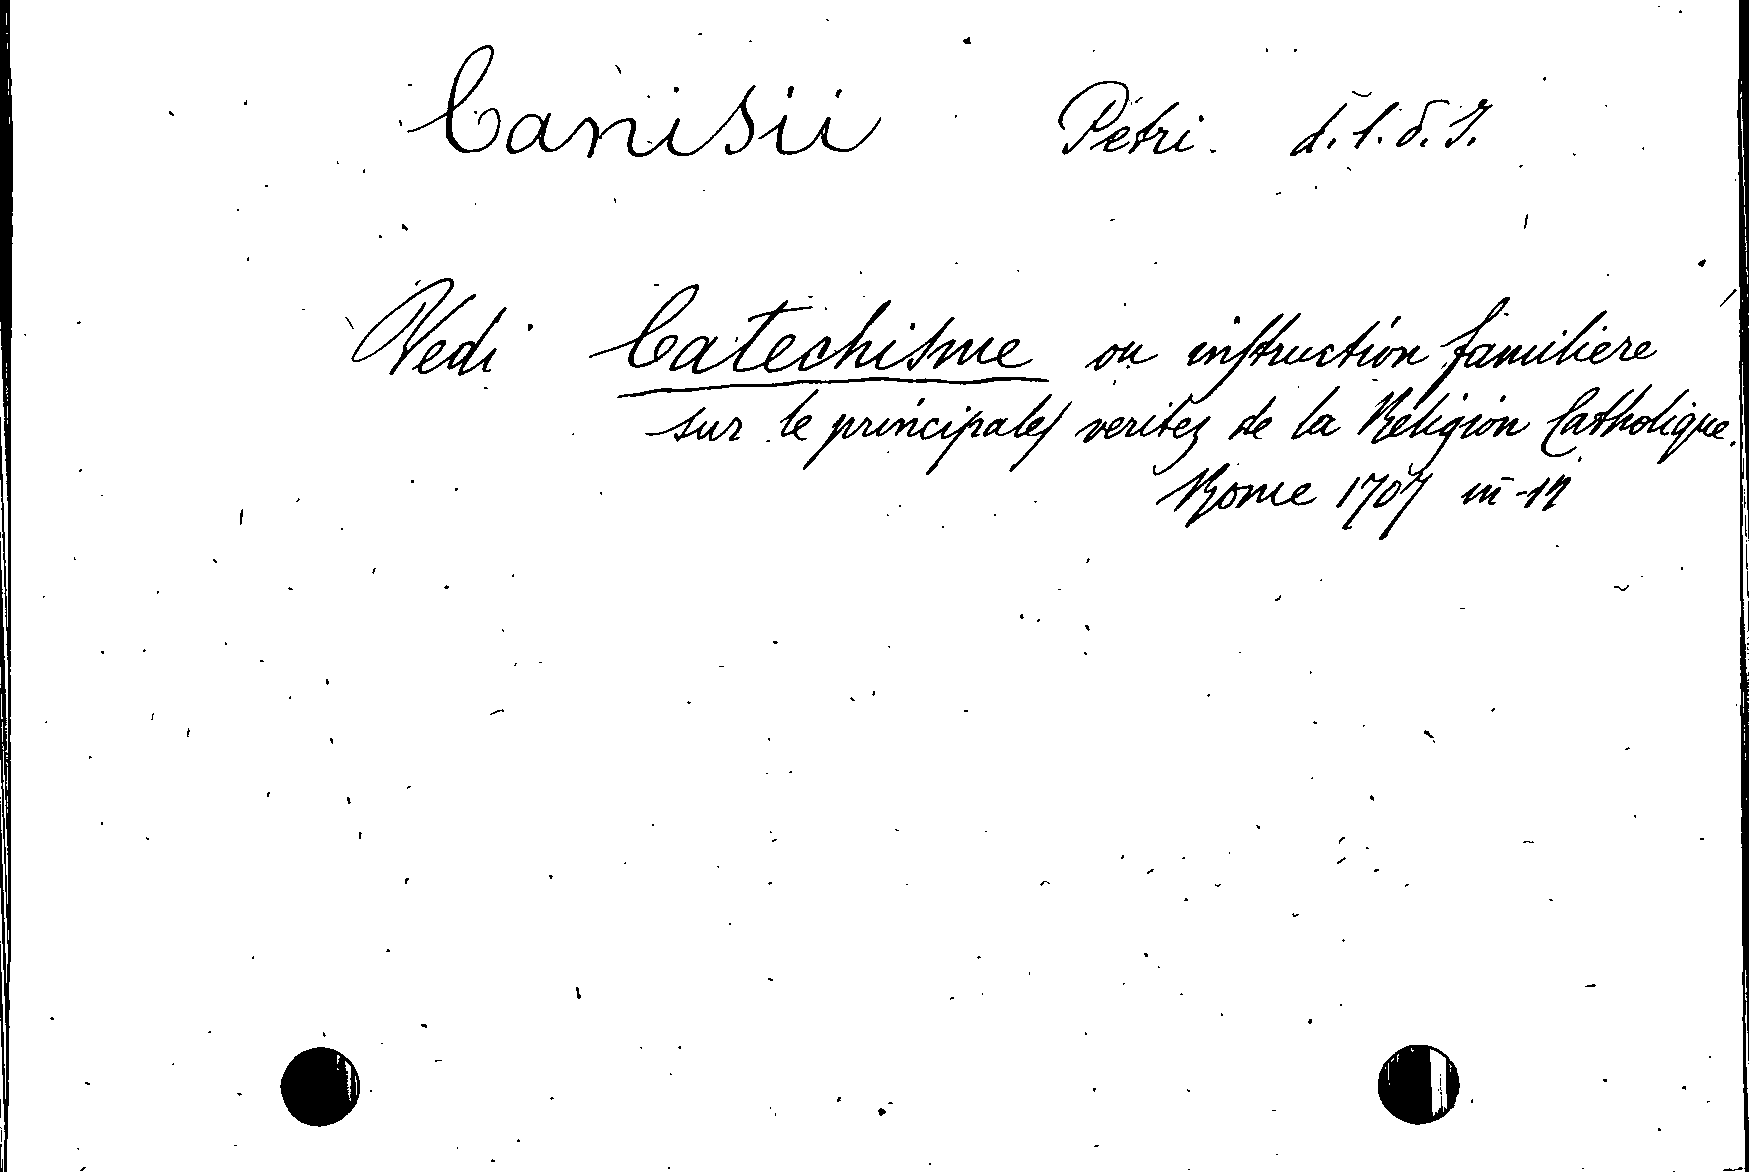 Canisii Petri. d. C. d. J.
Vedi Catechisme ou instruction familiere
sur le principales veritez de la Religion Catholique.
Rome 1707 in-12